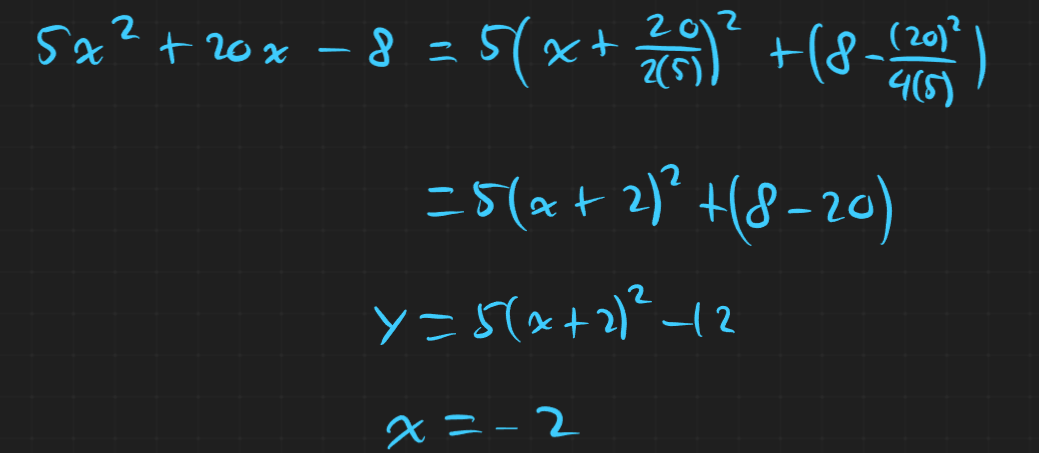 5x² + 20x - 8 = 5(x + 20/2(5))² + (8 - (20)²/4(5))
= 5(x + 2)² + (8 - 20)
y = 5(x + 2)² - 12
x = -2